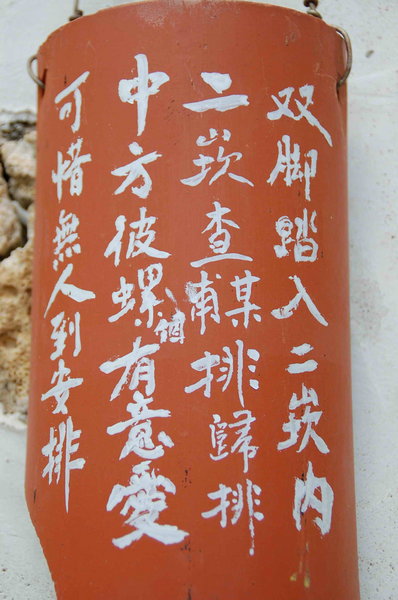 双脚踏入二崁内
二崁查甫某排歸排
中方彼螺個有意愛
可惜無人到安排